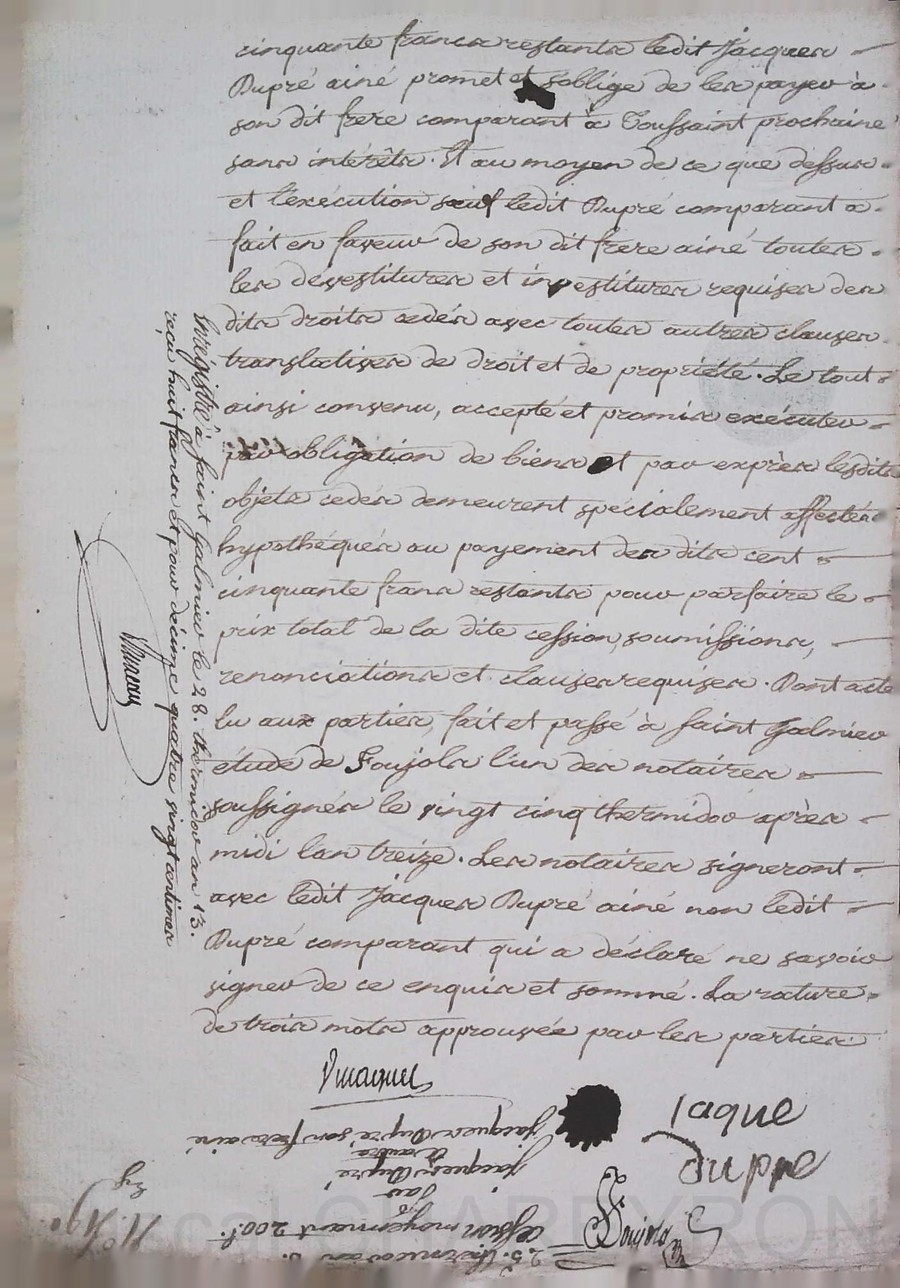 cinquante francs restants ledit Jacques
Dupré ainé promet et soblige de les payer à
son dit frere comparant à Toussaint prochaine
sans intérêts. Et au moyen de ce que dessus
et l'exécution sauf ledit Dupré comparant a
fait en faveur de son dit frere ainé toutes
les dévestitures et investitures requises des
dits droits cédés avec toutes autres clauses
translatives de droit et de propriété. Le tout
ainsi convenu, accepté et promis exécuter
par obligation de biens et par exprès lesdits
objets cedés demeurent spécialement affectés
hypothéqués au payement des dits cent
cinquante francs restants pour parfaire le
prix total de la dite cession, soumissions,
renonciations et clauses requises. Dont acte
lu aux parties, fait et passé à Saint Galmier
étude de Foujols l'un des notaires
soussignés le vingt cinq thermidor après
midi lan treize. Les notaires signeront
avec ledit Jacques Dupré ainé non ledit
Dupré comparant qui a déclaré ne savoir
signer de ce enquis et sommé. La rature
de trois mots approuvée par les parties
Enregistré à Saint Galmier le 28. thermidor an 13.
reçu huit francs et pour décime quatre vingt centimes
Jaque
duppe
Foujols
25. thermidor an 13.
cession moyennant 200f.
par
Jacques Dupré
à autre
Jacques Dupré son frere ainé